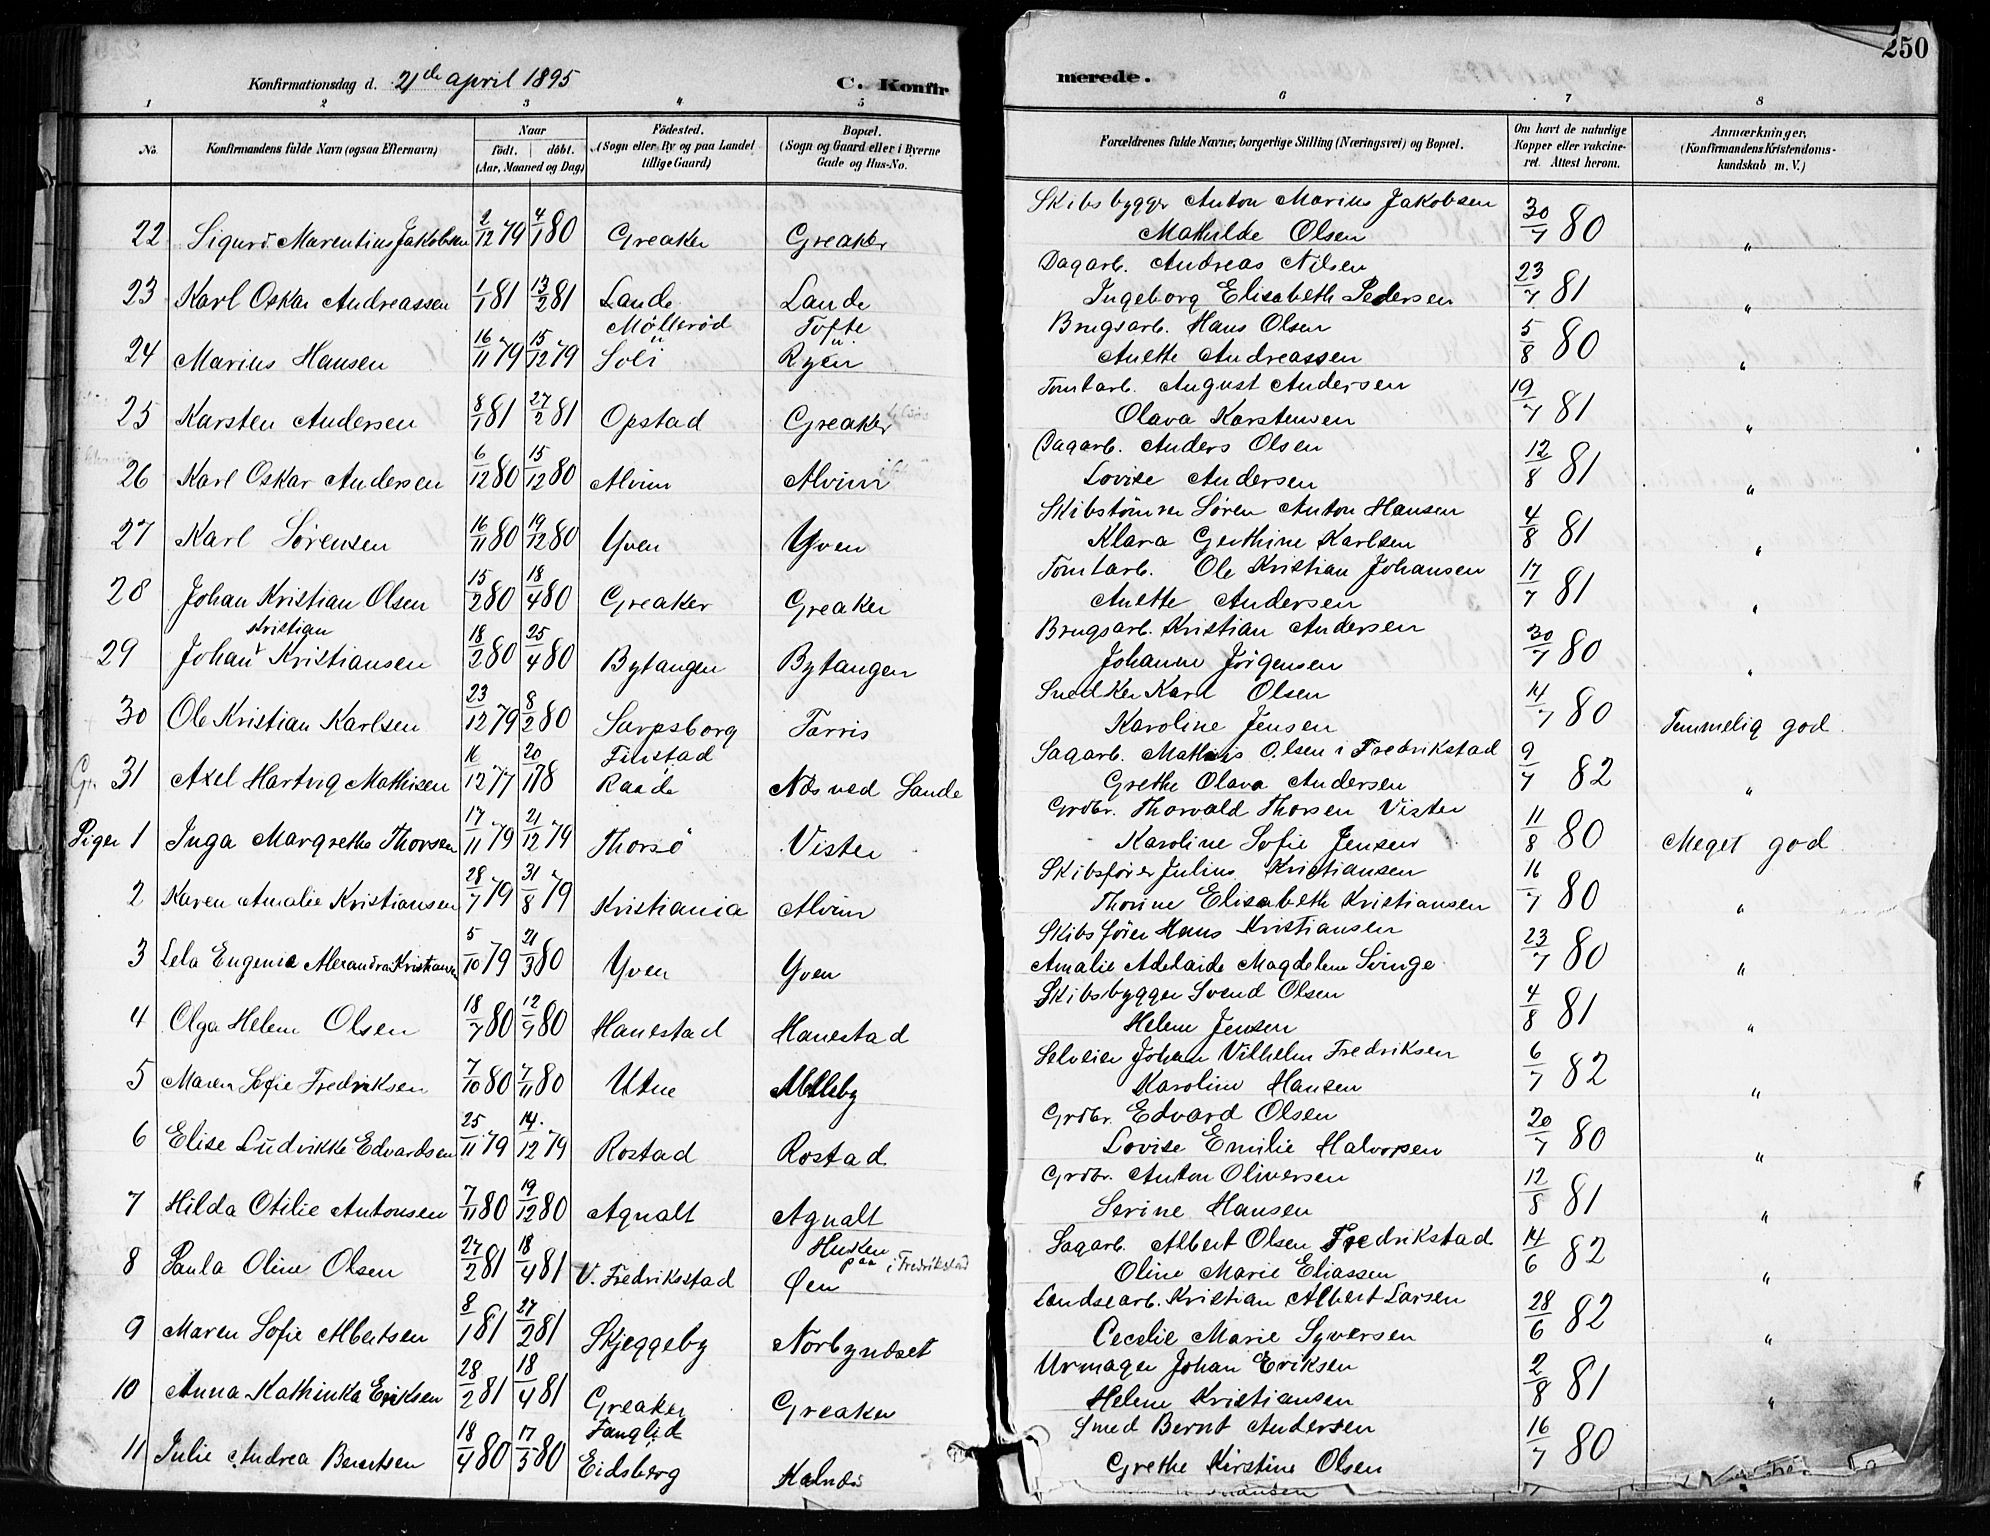 250
Konfirmationsdag d. 21de april 1895 C. Konfirmerede.
1 2 3 4 5 6 7 8
No. Konfirmandens fulde Navn (ogsaa Efternavn) Naar født. døbt. (Aar, Maaned og Dag) Fødested. (Sogn eller By og paa Landet tillige Gaard) Bopæl. (Sogn og Gaard eller i Byerne Gade og Hus-No. Forældrenes fulde Navne, borgerlige Stilling (Næringsvei) og Bopæl. Om havt de naturlige Kopper eller vaccineret. Attest herom. Anmærkninger, (Konfirmandens Kristendomskundskab m. V.)
22 Sigurd Marentius Jakobsen 2/12 79 4/1 80 Greaker Greaker Skibsbygger Anton Marius Jakobsen Mathilde Olsen 30/7 80 "
23 Karl Oskar Andreassen 1/1 81 13/2 81 Lande Lande Dagarb. Andreas Nilsen Ingeborg Elisabeth Pedersen 23/7 81 "
24 Marius Hansen 16/11 79 15/12 79 Mölleröd u Soli Tofte u. Ryen Brugsarb. Hans Olsen Anette Andreassen 5/8 80 "
25 Karsten Andersen 8/1 81 27/2 81 Opstad Greaker Tomtarb. August Andersen Olava Karstensen 19/7 81 "
26 Karl Oskar Andersen 6/12 80 15/12 80 Alvim Alvim Dagarb. Anders Olsen Lovise Andersen 12/8 81 "
27 Karl Sørensen 16/11 80 19/12 80 Yven Yven Skibstømrer Søren Anton Hansen Klara Gerthine Karlsen 4/8 81 "
28 Johan Kristian Olsen 15/2 80 18/4 80 Greaker Greaker Tomtarb. Ole Kristian Johansen Anette Andersen 17/7 81 "
29 Johan Kristian Kristiansen 18/2 80 25/4 80 Bytangen Bytangen Brugsarb. Kristian Andersen Johanne Jörgensen 30/7 80 "
30 Ole Kristian Karlsen 23/12 79 8/2 80 Sarpsborg Tarris Snedker Karl Olsen Karoline Jensen 14/7 80 Temmelig god
Gr. 31 Axel Hartvig Mathisen 16/12 77 20/1 78 Filistad Raade Näs ved Lande Sagarb. Mathias Olsen i Fredrikstad Grethe Olava Andersen 9/7 82 "
Piger 1 Inga Margrethe Thorsen 17/11 79 21/12 79 Thorsö Vister Grdbr. Thorvald Thorsen Vister Karoline Sofie Jensen 11/8 80 Meget god
2 Karen Amalie Kristiansen 28/7 79 31/8 79 Kristiania Alvim Skibsfører Julius Kristiansen Thorine Elisabeth Kristiansen 16/7 80 "
3 Lela Eugenia Alexandra Kristiansen 5/10 79 21/3 80 Yven Yven Skibsförer Hans Kristiansen Amalie Adelaide Magdelene Svinge 23/7 80 "
4 Olga Helene Olsen 18/7 80 12/9 80 Hanestad Hanestad Skibsbygger Svend Olsen Helene Jensen 4/8 81 "
5 Maren Sofie Fredriksen 7/10 80 7/11 80 Utne Alleby Selveier Johan Vilhelm Fredriksen Karoline Hansen 6/7 82 "
6 Elise Ludvikke Edvardsen 25/11 79 14/12 79 Rostad Rostad Grdbr. Edvard Olsen Lovise Emilie Halvorsen 20/7 80 "
7 Hilda Otilie Antonsen 7/11 80 19/12 80 Agnalt Agnalt Grdbr. Anton Oliversen Serine Hansen 12/8 81 "
8 Paula Oline Olsen 27/2 81 18/4 81 V. Fredriksstad Husken paa i Fredrikstad Øen Sagarb. Albert Olsen Fredrikstad Oline Marie Eliassen 14/6 82 "
9 Maren Sofie Albertsen 8/1 81 27/2 81 Skjeggeby Norbyndset Landsearb. Kristian Albert Larsen Cecelie Marie Syversen 28/6 82 "
10 Anna Kathinka Eriksen 28/2 81 18/4 81 Greaker Greaker Urmager Johan Eriksen Helene Kristiansen 2/8 81 "
11 Julie Andrea Berntsen 18/4 80 17/5 80 Fanglid Eidsberg Kalnäs Smed Bernt Andersen Grethe Kirstine Olsen 16/7 80